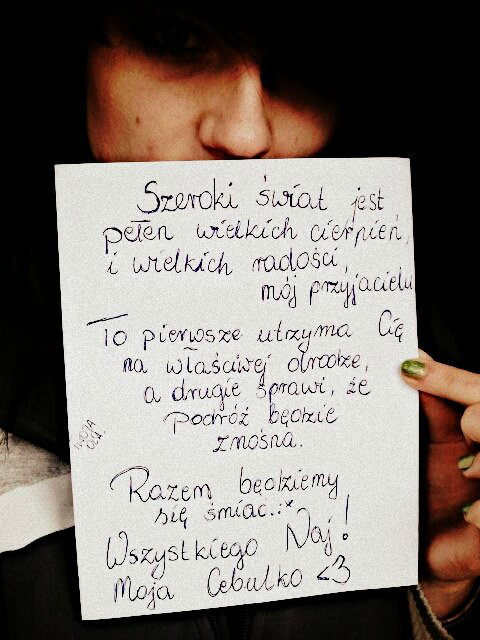 Szeroki świat jest
pełen wielkich cierpień,
i wielkich radości,
mój przyjacielu
To pierwsze utrzyma Cię
na właściwej drodze,
a drugie sprawi, że
podróż będzie
znośna.
Razem będziemy
się śmiać.:*
Wszystkiego Naj!
Moja Cebulko <3